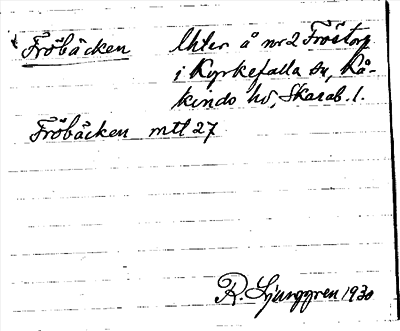 Fröbäcken hiter å nr 2 Fröstorp
i Kyrkefalla sn, Kå-
kinds hd, Skarab. l.
Fröbäcken mtt 27
R. Ljunggren 1930